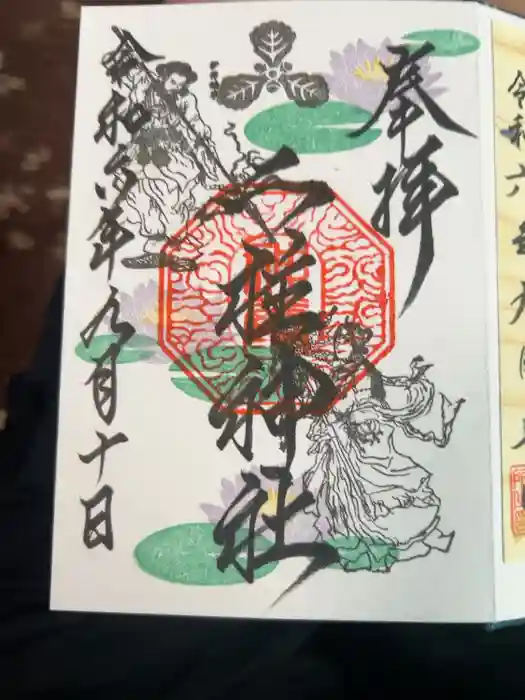 奉拝
二柱神社
令和六年九月十日
令和六年九月